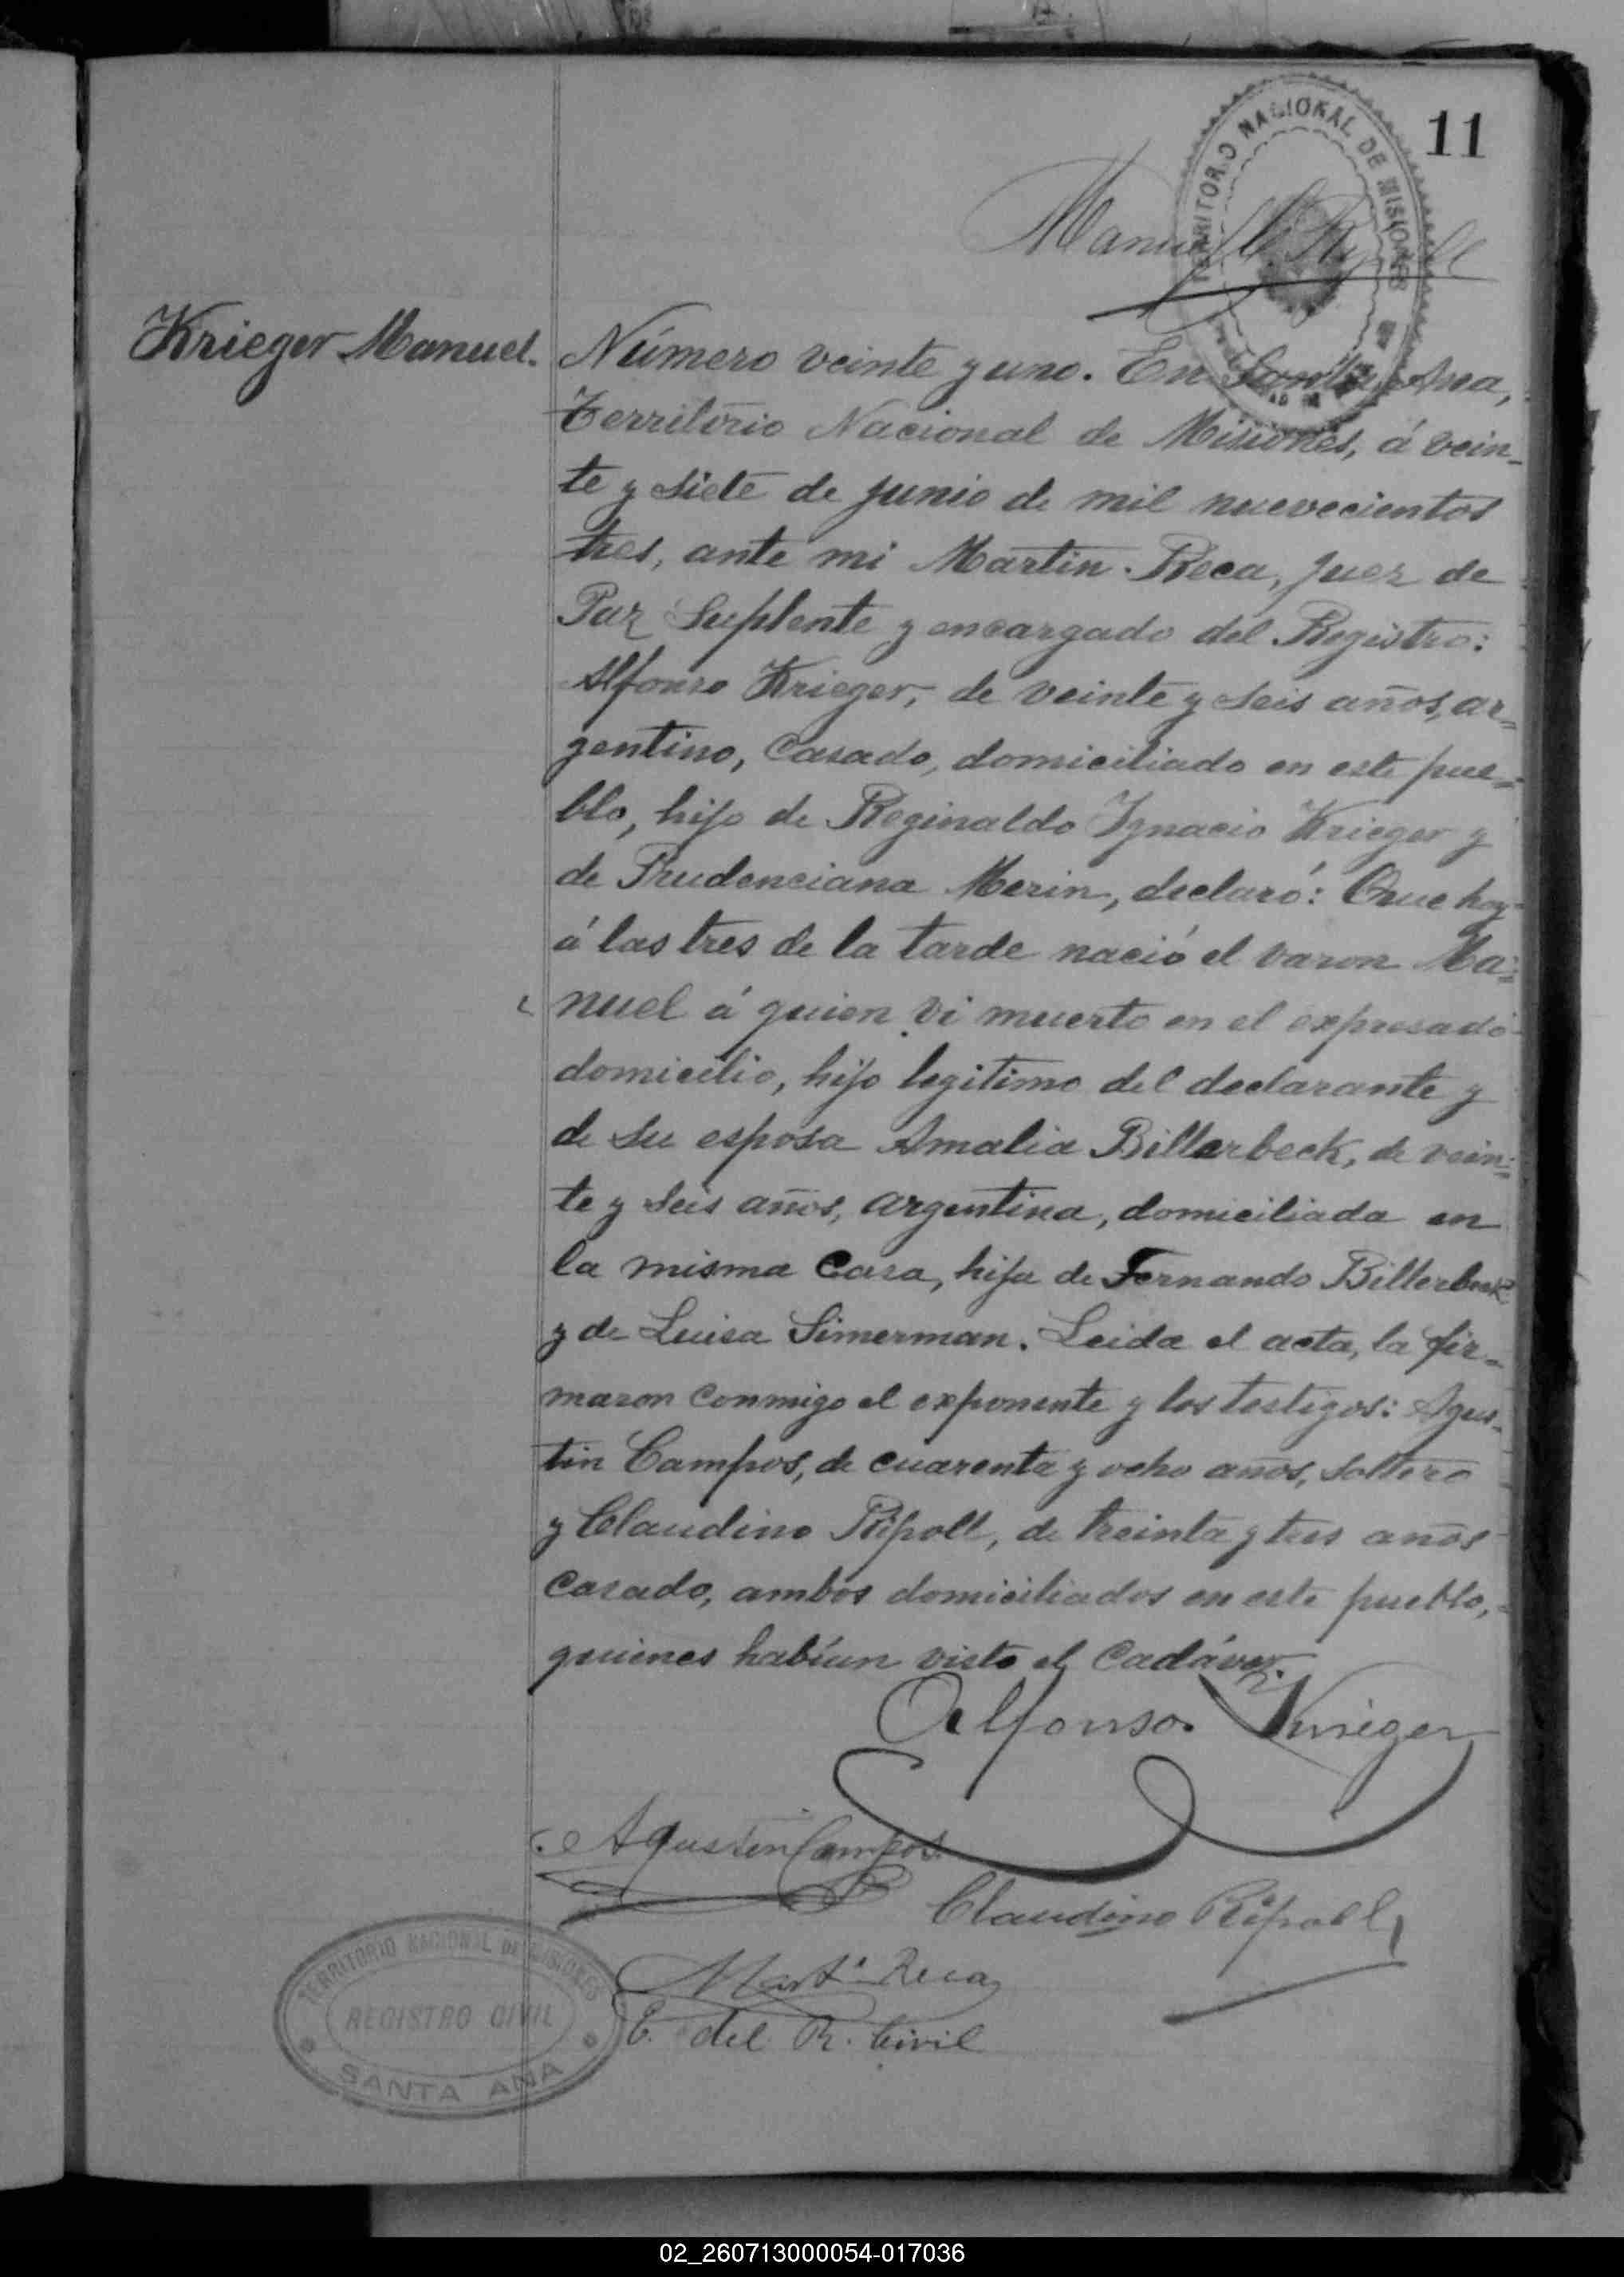 11
TERRITORIO NACIONAL DE MISIONES
Krieger Manuel.
Número veinte y uno. En Santa Ana,
Territorio Nacional de Misiones, á vein-
te y siete de junio de mil nuevecientos
tres, ante mi Martin Reca, juez de
Paz Suplente y encargado del Registro:
Alfonso Krieger, de veinte y seis años, ar=
gentino, casado, domiciliado en este pue=
blo, hijo de Reginaldo Ignacio Krieger y
de Prudenciana Merin, declaró: Que hoy
á las tres de la tarde nació el varon Ma=
nuel á quien vi muerto en el expresado
domicilio, hijo legitimo del declarante y
de su esposa Amalia Billerbeck, de vein=
te y seis años, argentina, domiciliada en
la misma casa, hija de Fernando Billerbeck
y de Luisa Simerman. Leida el acta, la fir-
maron conmigo el exponente y los testigos: Agus-
tin Campos, de cuarenta y ocho años, soltero
y Claudino Ripoll, de treinta y tres años
casado, ambos domiciliados en este pueblo,
quienes habían visto el cadáver.
Alfonso Krieger
Agustin Campos
Claudino Ripoll
Martn Reca
E. del R. Civil
TERRITORIO NACIONAL DE MISIONES
REGISTRO CIVIL
SANTA ANA
02_260713000054-017036